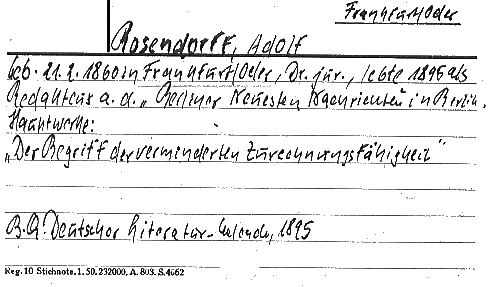 Frankfurt/Oder
Rosendorff, Adolf
geb. 21.2.1860 in Frankfurt/Oder, Dr. jur., lebte 1895 als
Redakteur a. d. „Berliner Neuesten Nachrichten" in Berlin.
Hauptwerke:
„Der Begriff der verminderten Zurechnungsfähigkeit"
B. Q. Deutscher Literatur-Kalender, 1895
Reg. 10 Stichnote. 1. 50. 232000. A. 803. S. 4662